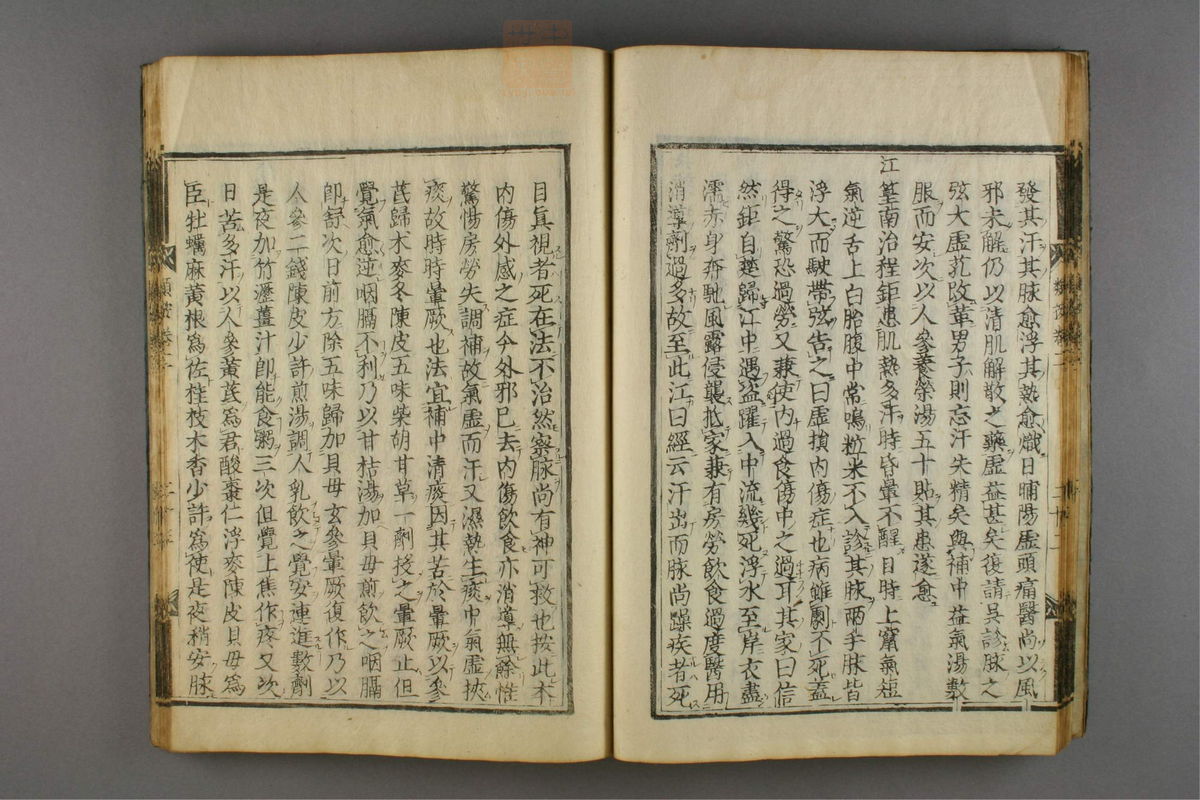 發其汗其脉愈浮其熱愈熾日晡陽虛頭痛醫尚以風
邪未解仍以清肌解散之藥虛益甚矣復請吳診脉之
弦大虛芤改革男子則忘汗失精矣與補中益氣湯數
服而安次以人參養榮湯五十貼其患遂愈
江篁南治程鉅患肌熱多汗時昏暈不醒目時上竄氣短
氣逆舌上白胎腹中常鳴粒米不入診其脉兩手脉皆
浮大而駛帶弦告之曰虛損內傷症也病雖劇不死蓋
得之驚恐過勞又兼使內過食傷中之過耳其家曰信
然鉅自楚歸江中遇盜躍入中流幾死浮水至岸衣盡
濡赤身奔馳風露侵襲抵家兼有房勞飲食過度醫用
消導劑過多故至此江曰經云汗出而脉尚躁疾者死
目真視者死在法不治然察脉尚有神可救也按此本
內傷外感之症今外邪已去內傷飲食亦消導無餘惟
驚惕房勞失調補故氣虛而汗又濕熱生痰中氣虛挾
痰故時時暈厥也法宜補中清痰因其苦於暈厥以參
芪歸术麥冬陳皮五味柴胡甘草一劑投之暈厥止但
覺氣愈逆咽膈不利乃以甘枯湯加貝母煎飲之咽膈
即舒次日前方除五味歸加貝母玄參暈厥復作乃以
人參二錢陳皮少許煎湯調人乳飲之覺安連進數劑
是夜加竹瀝薑汁即能食粥三次但覺上焦作疼又次
日苦多汗以人參黃芪為君酸棗仁浮麥陳皮貝母為
臣牡蠣麻黃根為佐桂枝木香少許為使是夜稍安脉